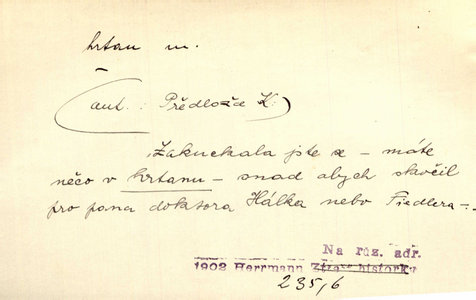 krtan m.
(aut.: Předlože K.)
Zakuckala jste se – máte
něco v krtanu – snad abych skočil
pro pana doktora Hálka nebo Fiedlera –.
Na růz. adr.
1902 Herrmann Ztrac. historky
235,6